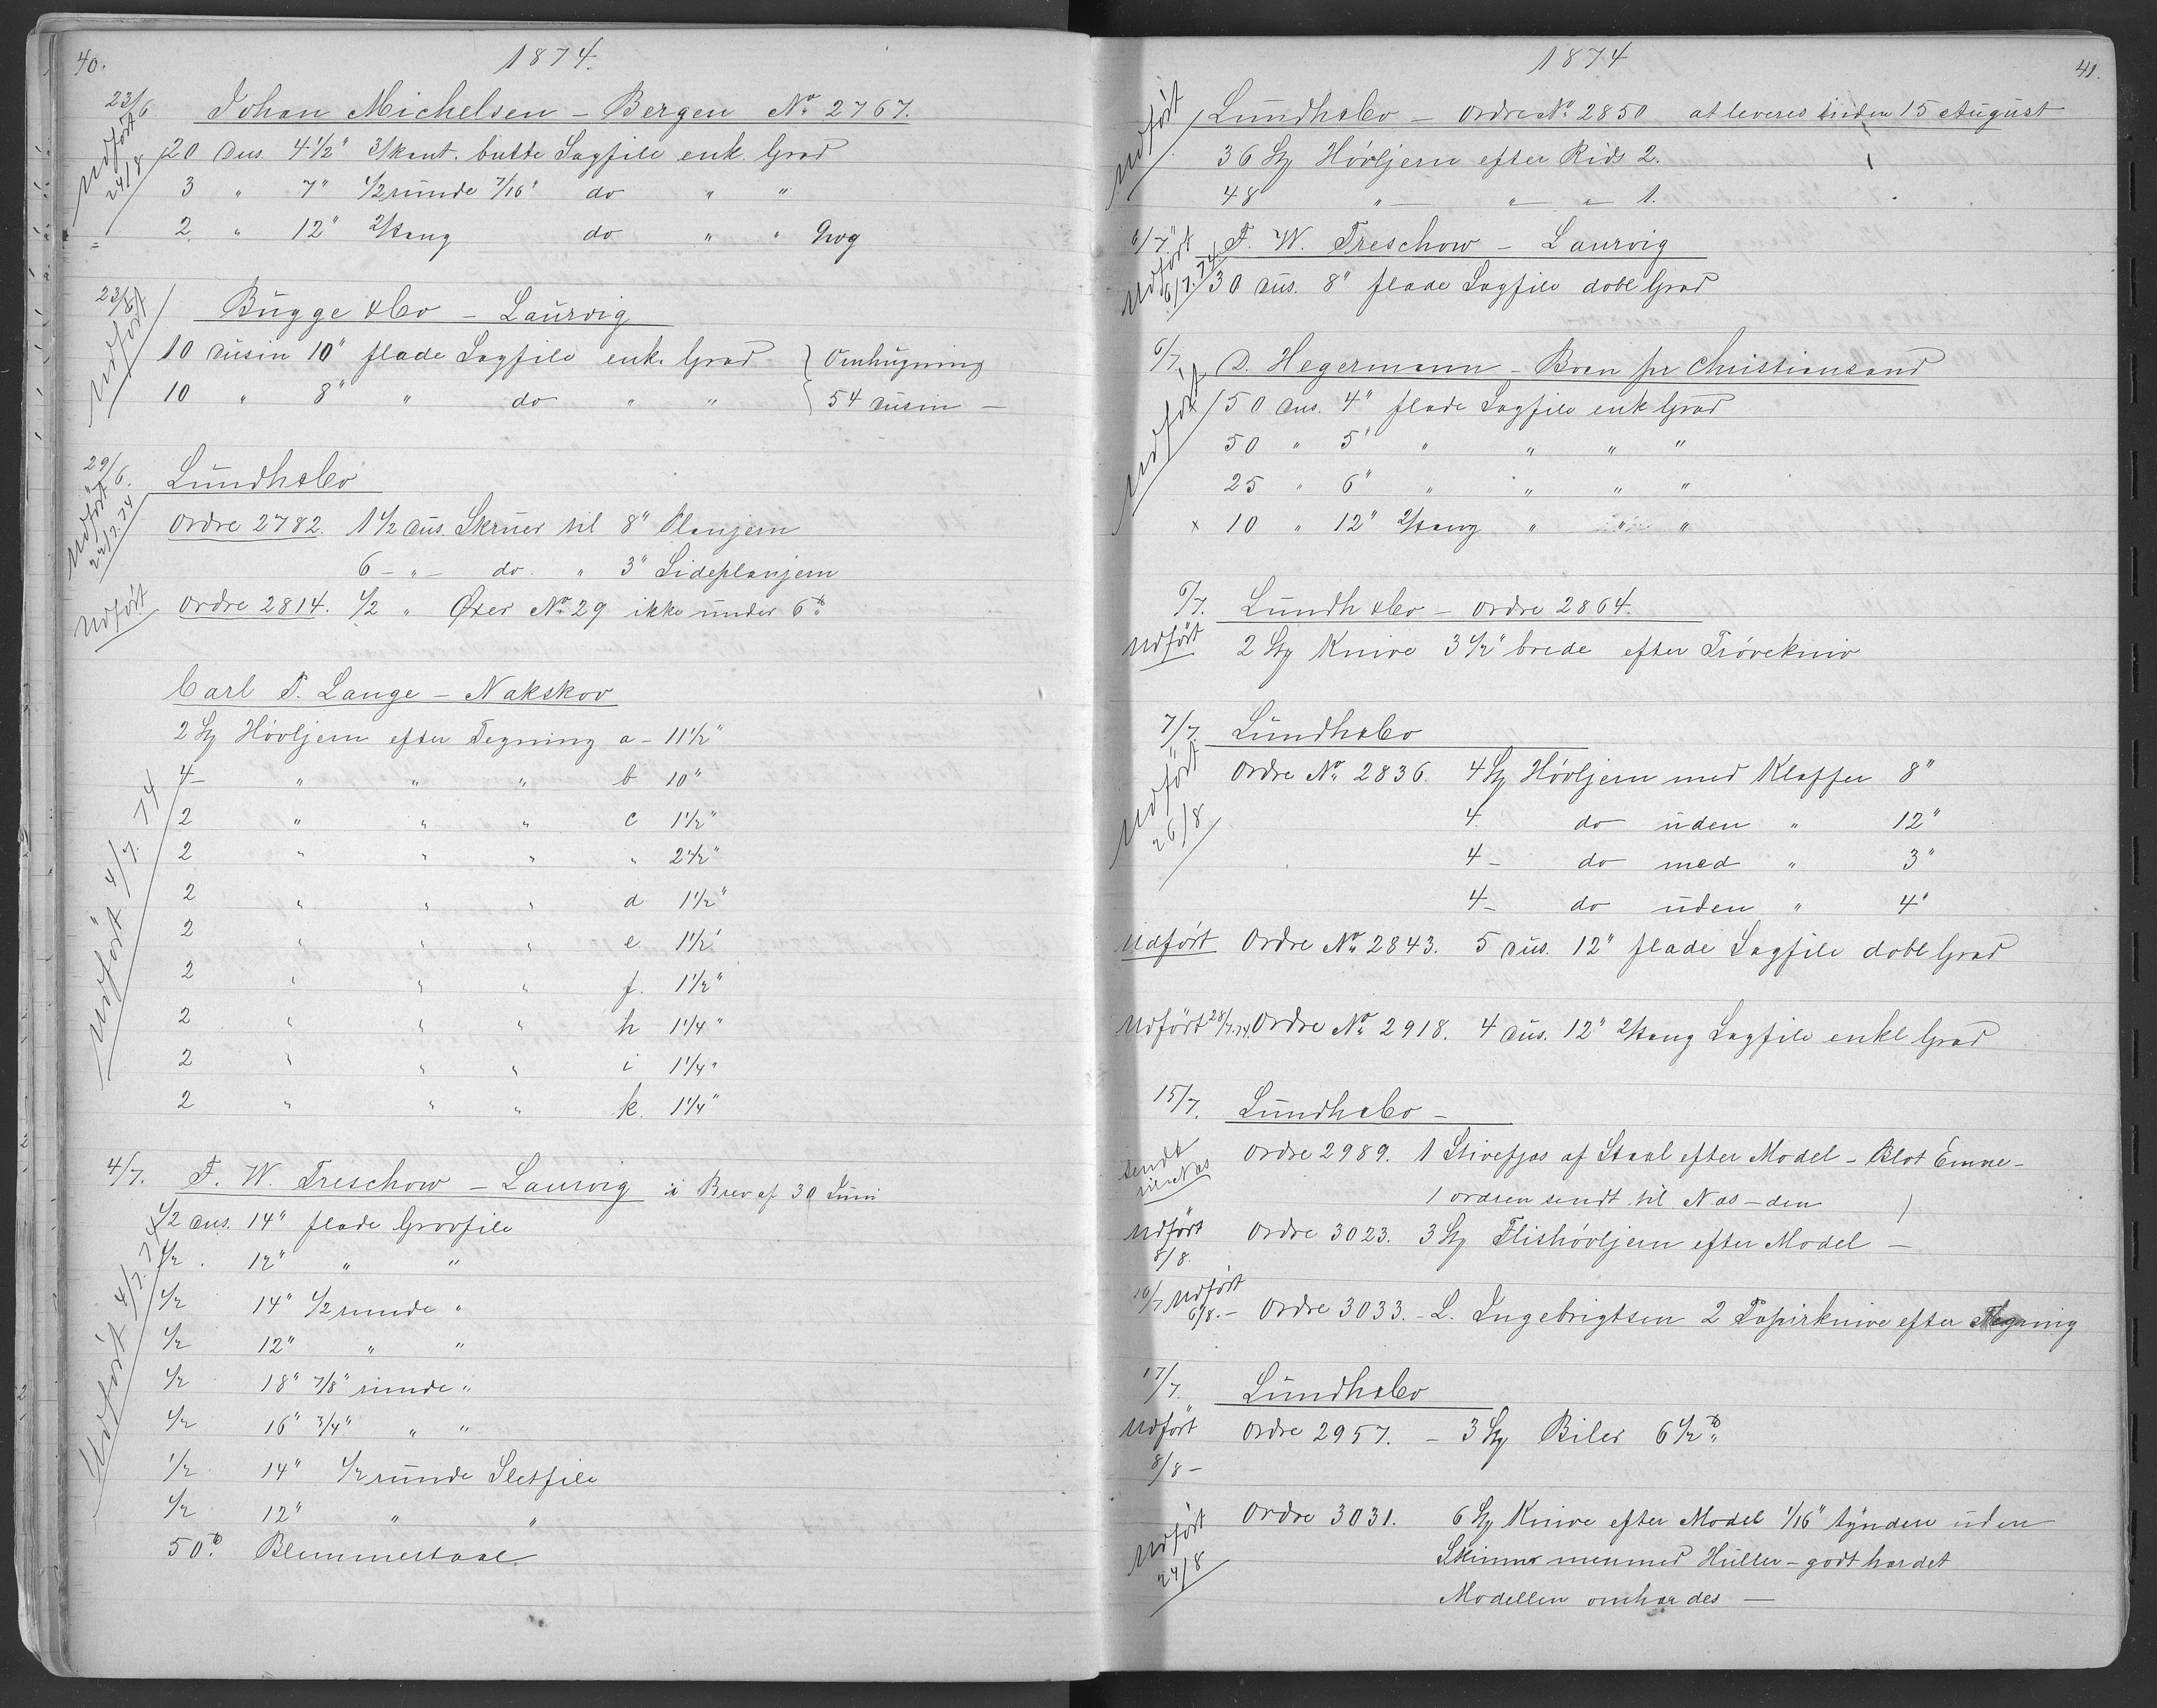 40.
1874.
23/6 Johan Michelsen – Bergen No 2767.
Udført 24/8
20 Dus. 4 1/2" 3/kant. butte Sagfile enk. Grad
3 " 7" 1/2 runde 7/16" do " "
2 " 12" 2/tang do " " Grov
23/6 Bugge & Co – Laurvig
Udført
10 Dusin 10" flade Sagfile enk. Grad } Omhugning
10 " 8" " do " " } 54 Dusin –
29/6. Lundh & Co
Udført 22/7. 74
Ordre 2782. 1 1/2 Dus. Skruer til 8" Planjern
6 – " – do. " 3" Sideplanjern
Udført Ordre 2814. 1/2 " Øxer No 29 ikke under 6 ℔
Carl F. Lange – Nakskov
Udført 4/7. 74
2 Stg Høvljern efter Tegning a – 11 1/2"
4 – " " " b 10"
2 " " " c 1 1/2"
2 " " " " 2 1/2"
2 " " " d 1 1/2"
2 " " " e 1 1/2"
2 " " " f. 1 1/2"
2 " " " h 1 1/4"
2 " " " i 1 1/4"
2 " " " k. 1 1/4"
4/7. F. W. Treschow – Laurvig i Brev af 30 Juni
Udført 4/7. 74
1/2 Dus. 14" flade Grovfile
1/2 . 12" " "
1/2 14" 1/2 runde "
1/2 12" " "
1/2 18" 7/8" runde "
1/2 16" 3/4" " "
1/2 14" 1/2 runde Sletfile
1/2 12" " "
50 ℔ Blemmestaal
41.
1874
Udført
Lundh & Co – Ordre No 2850 at leveres inden 15 August
36 Stg Høvljern efter Rids 2.
48 " – " – " 1.
6/7. F. W. Treschow – Laurvig
Udført 6/7. 74
30 Dus. 8" flade Sagfile dobl Grad
6/7. D. Hegermann – Boen pr Christiansand
Udført
50 Dus. 4" flade Sagfile enk Grad
50 " 5" " " " "
25 " 6" " " " "
x 10 " 12" 2/tang " " "
6/7. Lundh & Co – Ordre 2864.
Udført 2 Stg Knive 3 1/2" brede efter Prøvekniv
7/7. Lundh & Co
Udført 26/8
Ordre No 2836. 4 Stg Høvljern med Klaffer 8"
4. do uden " 12"
4 – do med " 3"
4 – do uden " 4"
Udført Ordre No 2843. 5 Dus. 12" flade Sagfile dobl Grad
Udført 28/7. 74. Ordre No 2918. 4 Dus. 12" 2/tang Sagfile enkl Grad
15/7. Lundh & Co –
Sendt til Næs
Ordre 2989. 1 Stivefjas af Staal efter Model – Blot Emne –
1 ordren sendt til Næs – den
Udført 8/8. Ordre 3023. 3 Stg Flishøvljern efter Model –
16/7 Udført 6/8. – Ordre 3033. – L. Ingebrigtsen 2 Papirknive efter Tegning
17/7. Lundh & Co
Udført Ordre 2957. – 3 Stg Biler 6 1/2 ℔
8/8 –
Udført 24/8
Ordre 3031. 6 Stg Knive efter Model 1/16" tyndere uden
Skinner men med Huller – godt hærdet
Modellen omhærdes –